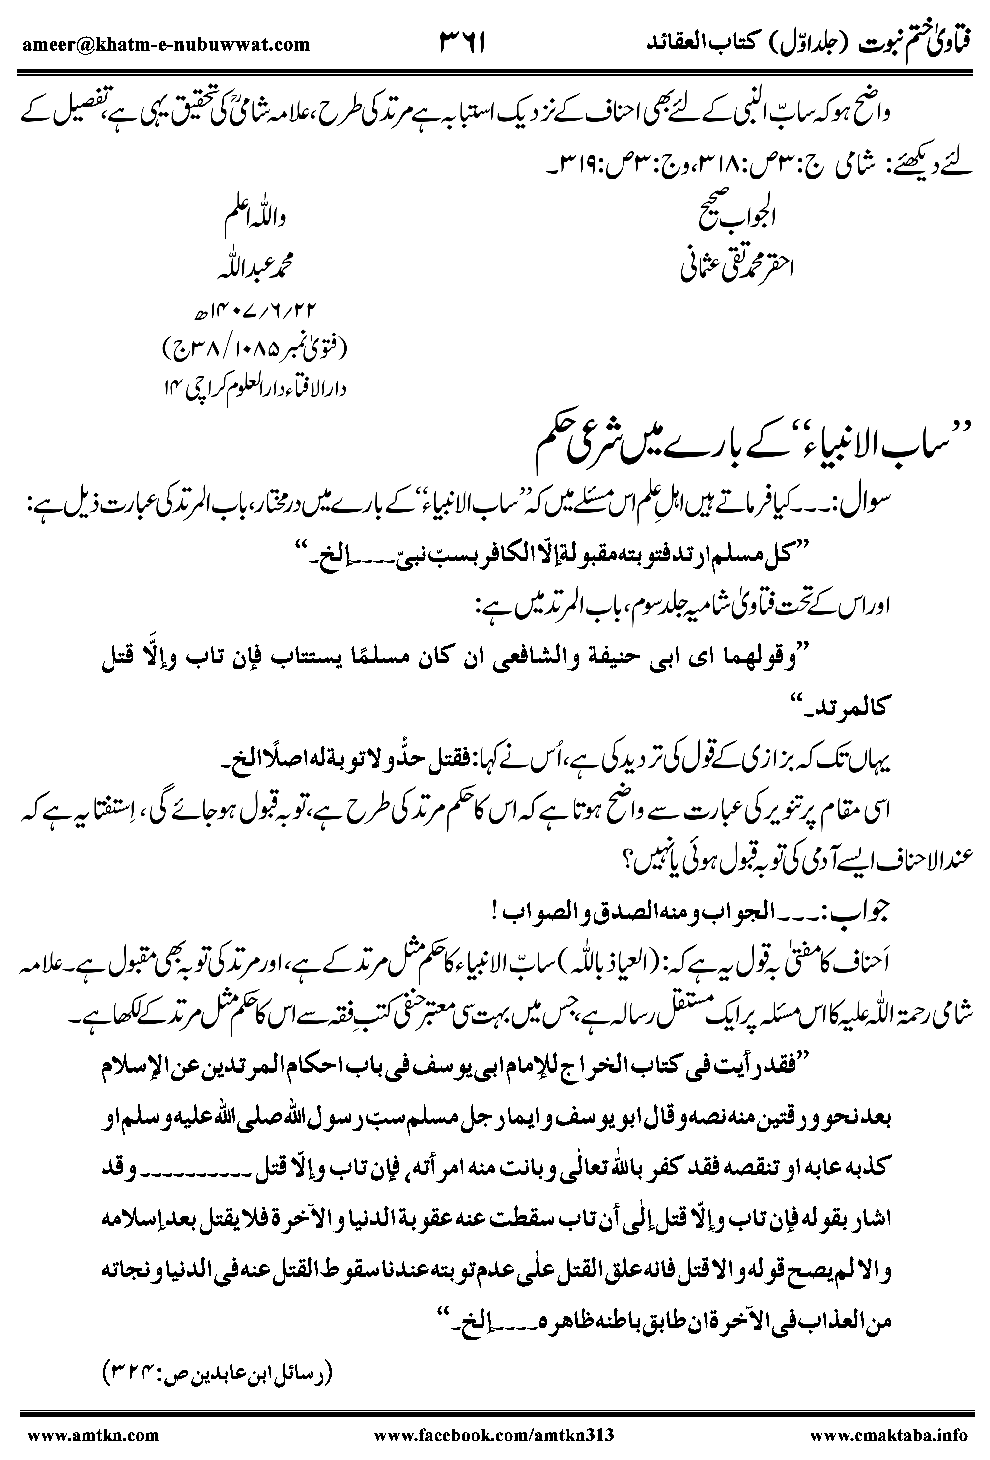 فتاویٰ ختم نبوت (جلد اوّل) کتاب العقائد ۳۶۱ ameer@khatm-e-nubuwwat.com
واضح ہو کہ سابّ النبی کے لئے بھی احناف کے نزدیک استتابہ ہے مرتد کی طرح، علامہ شامیؒ کی تحقیق یہی ہے، تفصیل کے
لئے دیکھئے: شامی ج:۳ ص:۳۱۸، وج:۳ ص:۳۱۹۔
الجواب صحیح واللہ اعلم
احقر محمد تقی عثمانی محمد عبداللہ
۲۲/۶/۱۴۰۷ھ
(فتویٰ نمبر ۱۰۸۵/۳۸ ج)
دارالافتاء دارالعلوم کراچی ۱۴
”ساب الانبیاء“ کے بارے میں شرعی حکم
سوال:۔۔۔ کیا فرماتے ہیں اہلِ علم اس مسئلے میں کہ ”ساب الانبیاء“ کے بارے میں درمختار، باب المرتد کی عبارت ذیل ہے:
”کل مسلم ارتد فتوبته مقبولة إلّا الکافر بسبّ نبیّ۔۔۔۔إلخ۔“
اور اس کے تحت فتاویٰ شامیہ جلد سوم، باب المرتد میں ہے:
”وقولهما ای ابی حنیفة والشافعی ان کان مسلمًا یستتاب فإن تاب وإلَّا قتل
کالمرتد۔“
یہاں تک کہ بزازی کے قول کی تردید کی ہے، اُس نے کہا: فقتل حدًّا ولا توبة له اصلًا الخ۔
اسی مقام پر تنویر کی عبارت سے واضح ہوتا ہے کہ اس کا حکم مرتد کی طرح ہے، توبہ قبول ہوجائے گی، اِستفتا یہ ہے کہ
عندالاحناف ایسے آدمی کی توبہ قبول ہوئی یا نہیں؟
جواب:۔۔۔ الجواب ومنه الصدق والصواب!
اَحناف کا مفتیٰ بہ قول یہ ہے کہ: (العیاذ باللہ) سابّ الانبیاء کا حکم مثل مرتد کے ہے، اور مرتد کی توبہ بھی مقبول ہے۔ علامہ
شامی رحمۃ اللہ علیہ کا اس مسئلہ پر ایک مستقل رسالہ ہے، جس میں بہت سی معتبر حنفی کتبِ فقہ سے اس کا حکم مثل مرتد کے لکھا ہے۔
”فقد رأیت فی کتاب الخراج للإمام ابی یوسف فی باب احکام المرتدین عن الإسلام
بعد نحو ورقتین منه نصه وقال ابو یوسف وایما رجل مسلم سبّ رسول اللہ صلی اللہ علیه وسلم او
کذبه عابه او تنقصه فقد کفر باللہ تعالٰی وبانت منه امرأته، فإن تاب وإلّا قتل۔۔۔۔۔۔۔۔۔۔ وقد
اشار بقوله فإن تاب وإلّا قتل إلٰی أن تاب سقطت عنه عقوبة الدنیا والآخرة فلا یقتل بعد إسلامه
والا لم یصح قوله والا قتل فانه علق القتل علٰی عدم توبته عندنا سقوط القتل عنه فی الدنیا ونجاته
من العذاب فی الآخرة ان طابق باطنه ظاهره۔۔۔۔إلخ۔“
(رسائل ابن عابدین ص:۳۲۴)
www.amtkn.com www.facebook.com/amtkn313 www.cmaktaba.info